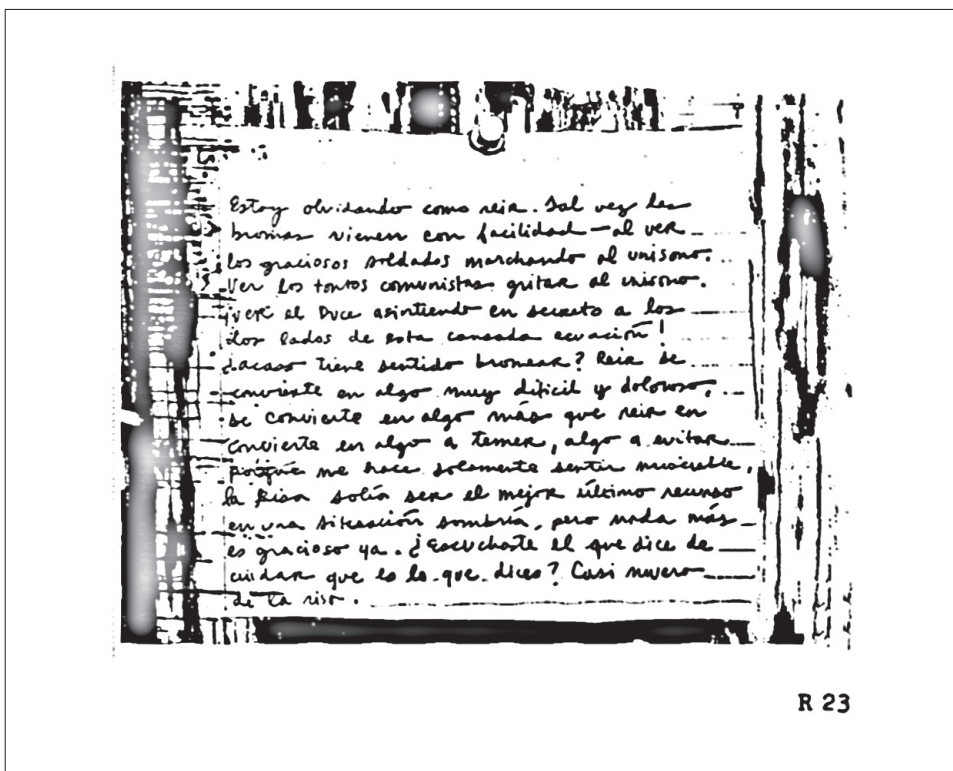 Estoy olvidando como reir. Tal vez las
bromas vienen con facilidad – al ver
los graciosos soldados marchando al unisono.
Ver los tontos comunistas gritar al unisono.
¡ver el Duce asintiendo en secreto a los
dos lados de esta cansada ecuación!
¿acaso tiene sentido bromear? Reir se
convierte en algo muy dificil y doloroso,
se convierte en algo más que reir en
convierte en algo a temer, algo a evitar
porque me hace solamente sentir miserable,
la risa solía ser el mejor último recurso
en una situación sombría, pero nada más
es gracioso ya. ¿Escuchaste el que dice de
cuidar que es lo que dices? Casi muero
de la risa.
R 23